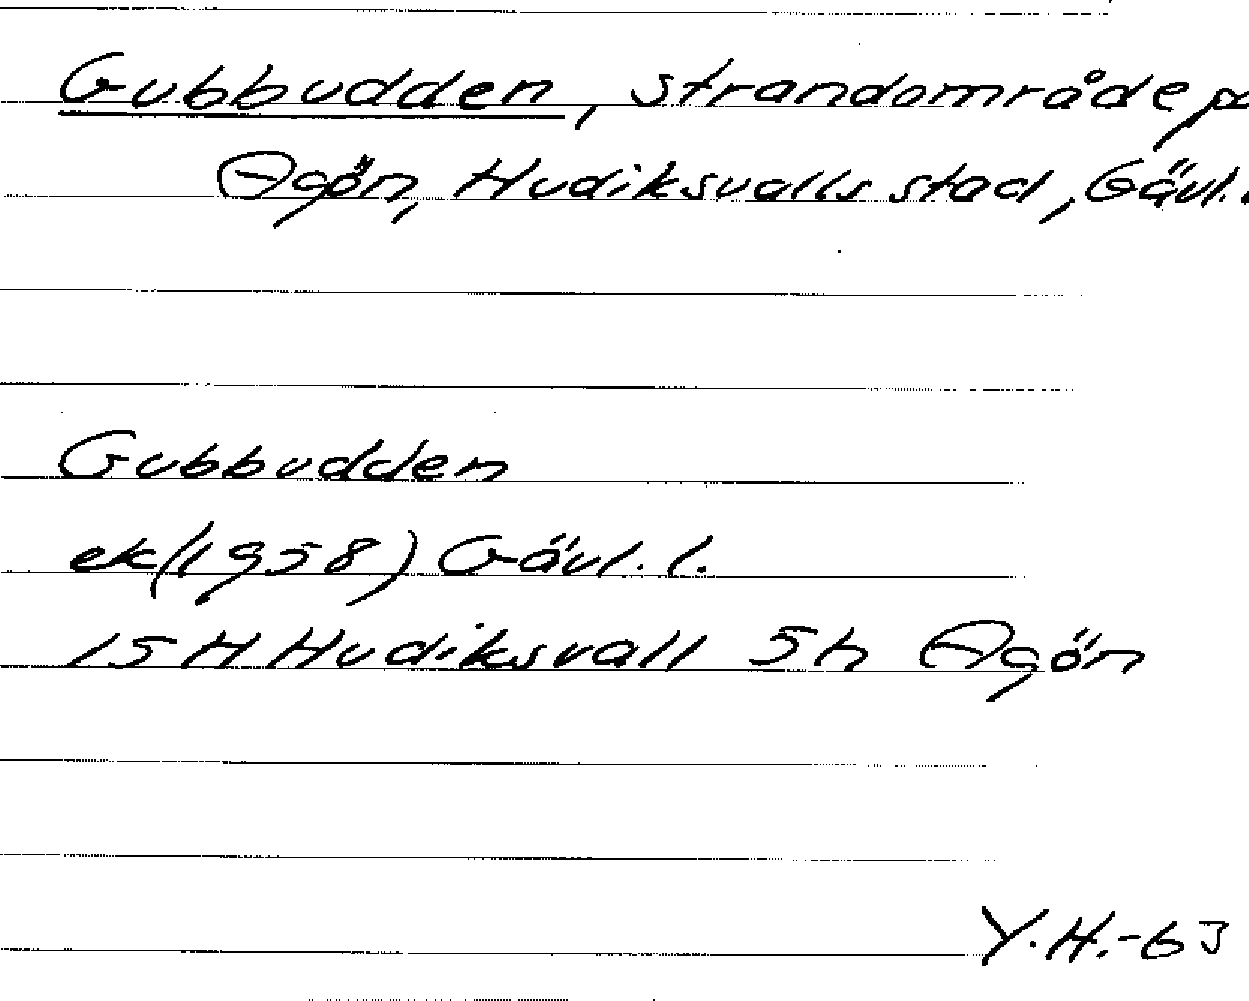 Gubbudden, strandområde p
Agön, Hudiksvalls stad, Gävl.
Gubbudden
ek(1958) Gävl. l.
15 H Hudiksvall 5h Agön
Y.H.-63